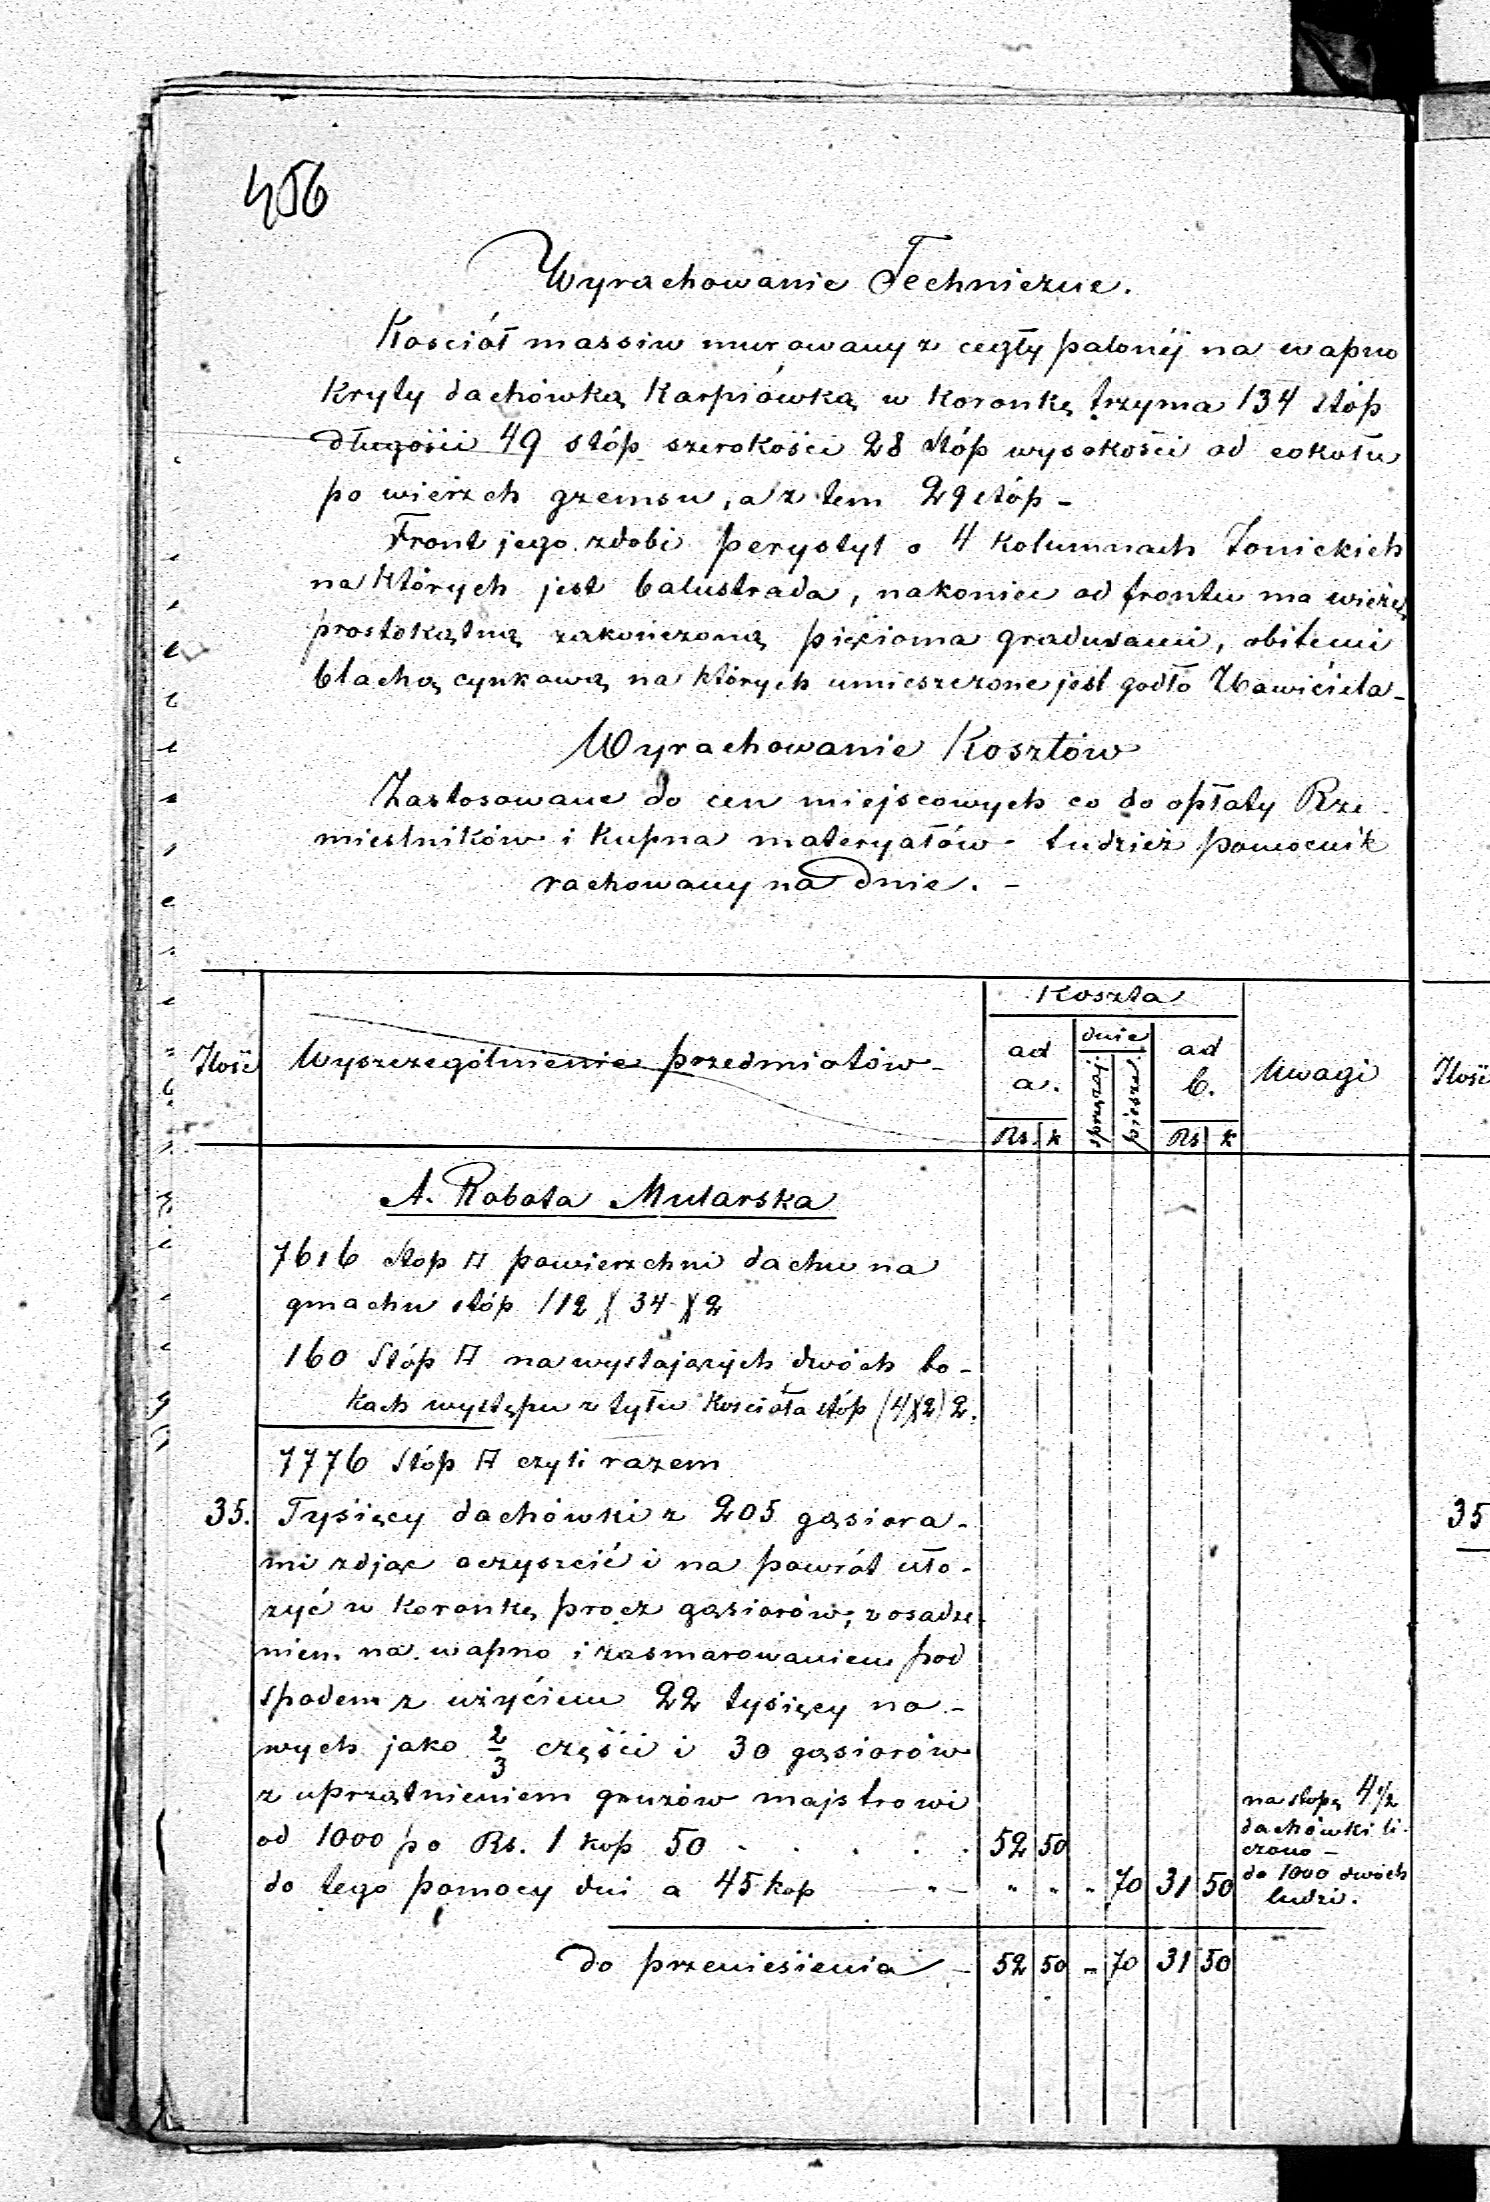 456
Wyrachowanie Techniczne.
Kościół massiw murowany z cegły palonéj na wapno
kryty dachówką Karpiówką w koronkę trzyma 134 stóp
długości 49 stóp szerokości 28 stóp wysokości od cokołu
po wierzch gzemsu, a z tem 29 stóp -
Front jego zdobi perystyl o 4 kolumnach Jonickich
na których jest balustrada, nakoniec od frontu ma wieżę
prostokątną zakończoną pięcioma gradusami, obitemi
blachą cynkową na których umieszczone jest godło Zbawiciela -
Wyrachowanie Kosztów
Zastosowane do cen miejscowych co do opłaty Rze-
mieslników i kupna materyałów - tudzież pomocnik
rachowany na dnie. -
Ilość
Wyszczególnienie przedmiotów -
Koszta
ad a.
dnie
sprzężaj
piesze
ad b.
Uwagi
Ilość
Rs. k
Rs k
A. Robota Mularska
7616 stóp □ powierzchni dachu na
gmachu stóp 112 X 34 X 2
160 stóp □ na wystających dwóch bo-
kach występu z tyłu Kościoła stóp (4X2) 2.
7776 stóp □ czyli razem
35. Tysięcy dachówki z 205 gąsiora-
mi zdjąć oczyszcić i na powrót uło-
żyć w koronkę procz gąsiorów, z osadze-
niem na wapno i zasmarowaniem pod
spodem z użyciem 22 tysięcy no-
wych jako 2/3 części i 30 gąsiorów
z uprzątnieniem gruzów majstrowi
od 1000 po Rs. 1 kop 50 . . . . . 52 50
na stopę 4 1/2
dachówki li-
czono -
do tego pomocy dni a 45 kop - " - " " " 70 31 50
do 1000 dwóch
ludzi.
do przeniesienia - 52 50 - 70 31 50
35